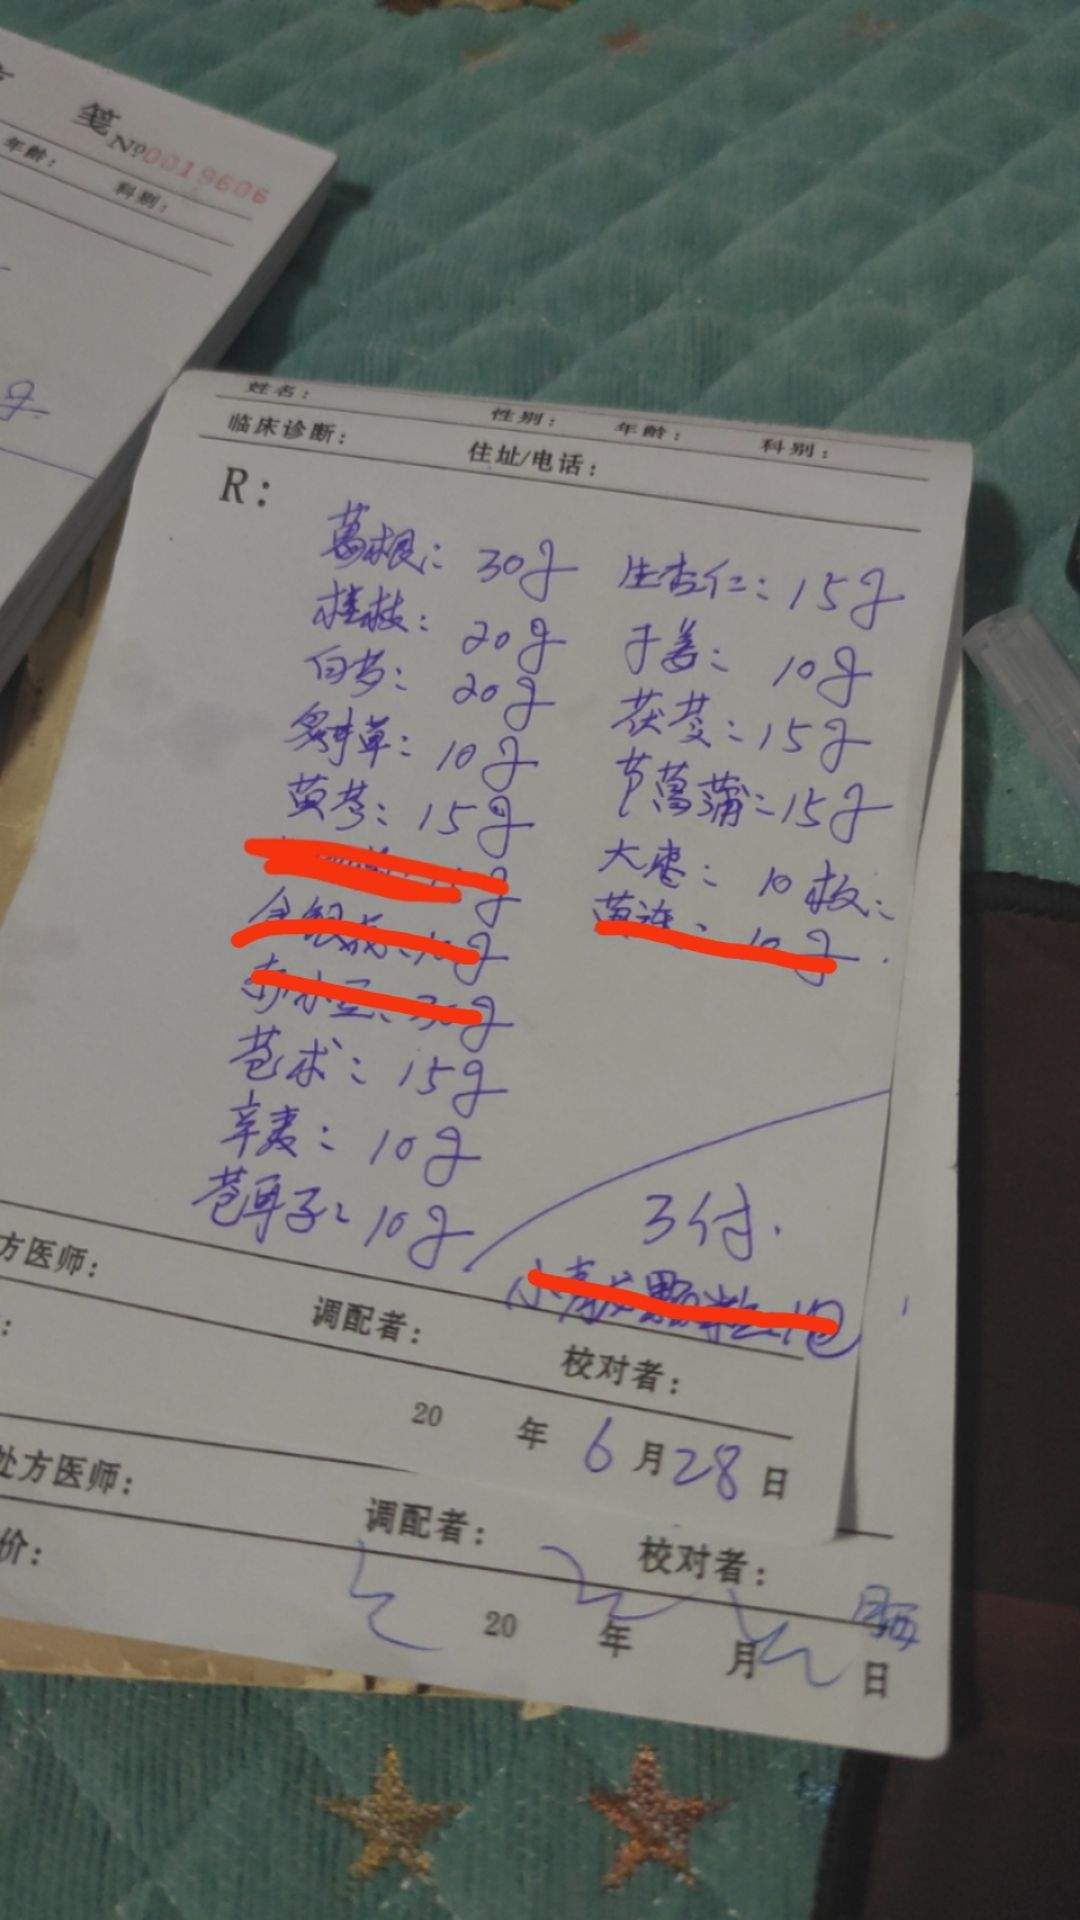 笺
№0019606
年龄：
科别：
姓名：
性别：
年龄：
科别：
临床诊断：
住址/电话：
R：
葛根：30g
桂枝：20g
白芍：20g
炙甘草：10g
黄芩：15g
金银花：10g
赤小豆：30g
苍术：15g
辛夷：10g
苍耳子：10g
生杏仁：15g
干姜：10g
茯苓：15g
节菖蒲：15g
大枣：10枚：
黄连：10g
3付.
方医师：
调配者：
校对者：
20 年 6 月 28 日
处方医师：
调配者：
校对者：
价：
20 年 月 日